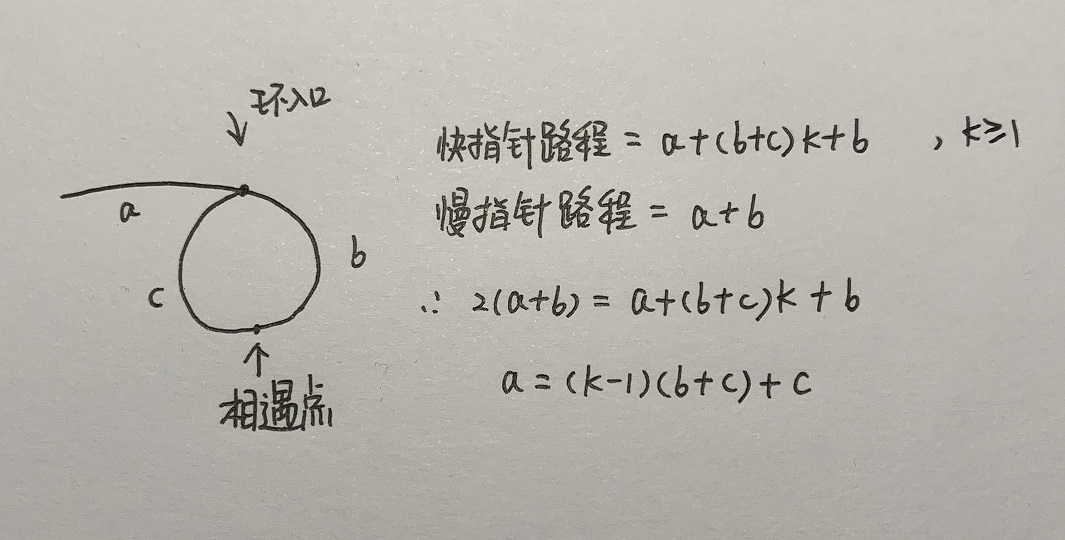 环入口
a
b
c
相遇点
快指针路程 = a+(b+c)k+b , k≥1
慢指针路程 = a+b
∴ 2(a+b) = a+(b+c)k+b
a = (k-1)(b+c)+c